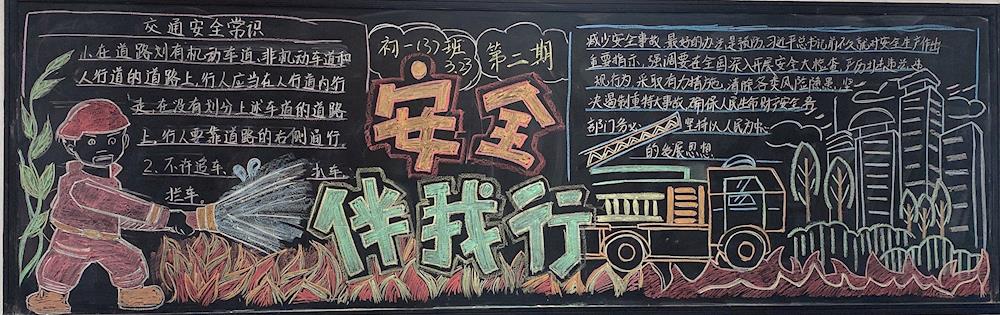 交通安全常识
小在道路划有机动车道、非机动车道和
人行道的道路上，行人应当在人行道内行
走，在没有划分上述车道的道路
上，行人要靠道路的右侧通行
2、不许追车、扒车、
拦车。
初一(37)班
3.23
第二期
安全
伴我行
减少安全事故,最好的办法是预防,习近平总书记前不久就对安全生产作出
重要指示,强调要在全国深入开展安全大检查,严厉打击违法
行为,采取有力措施,清除各类风险隐患,坚
决遏制重特大事故,确保人民生命财产安全
部门务必 坚持以人民为
的发展思想